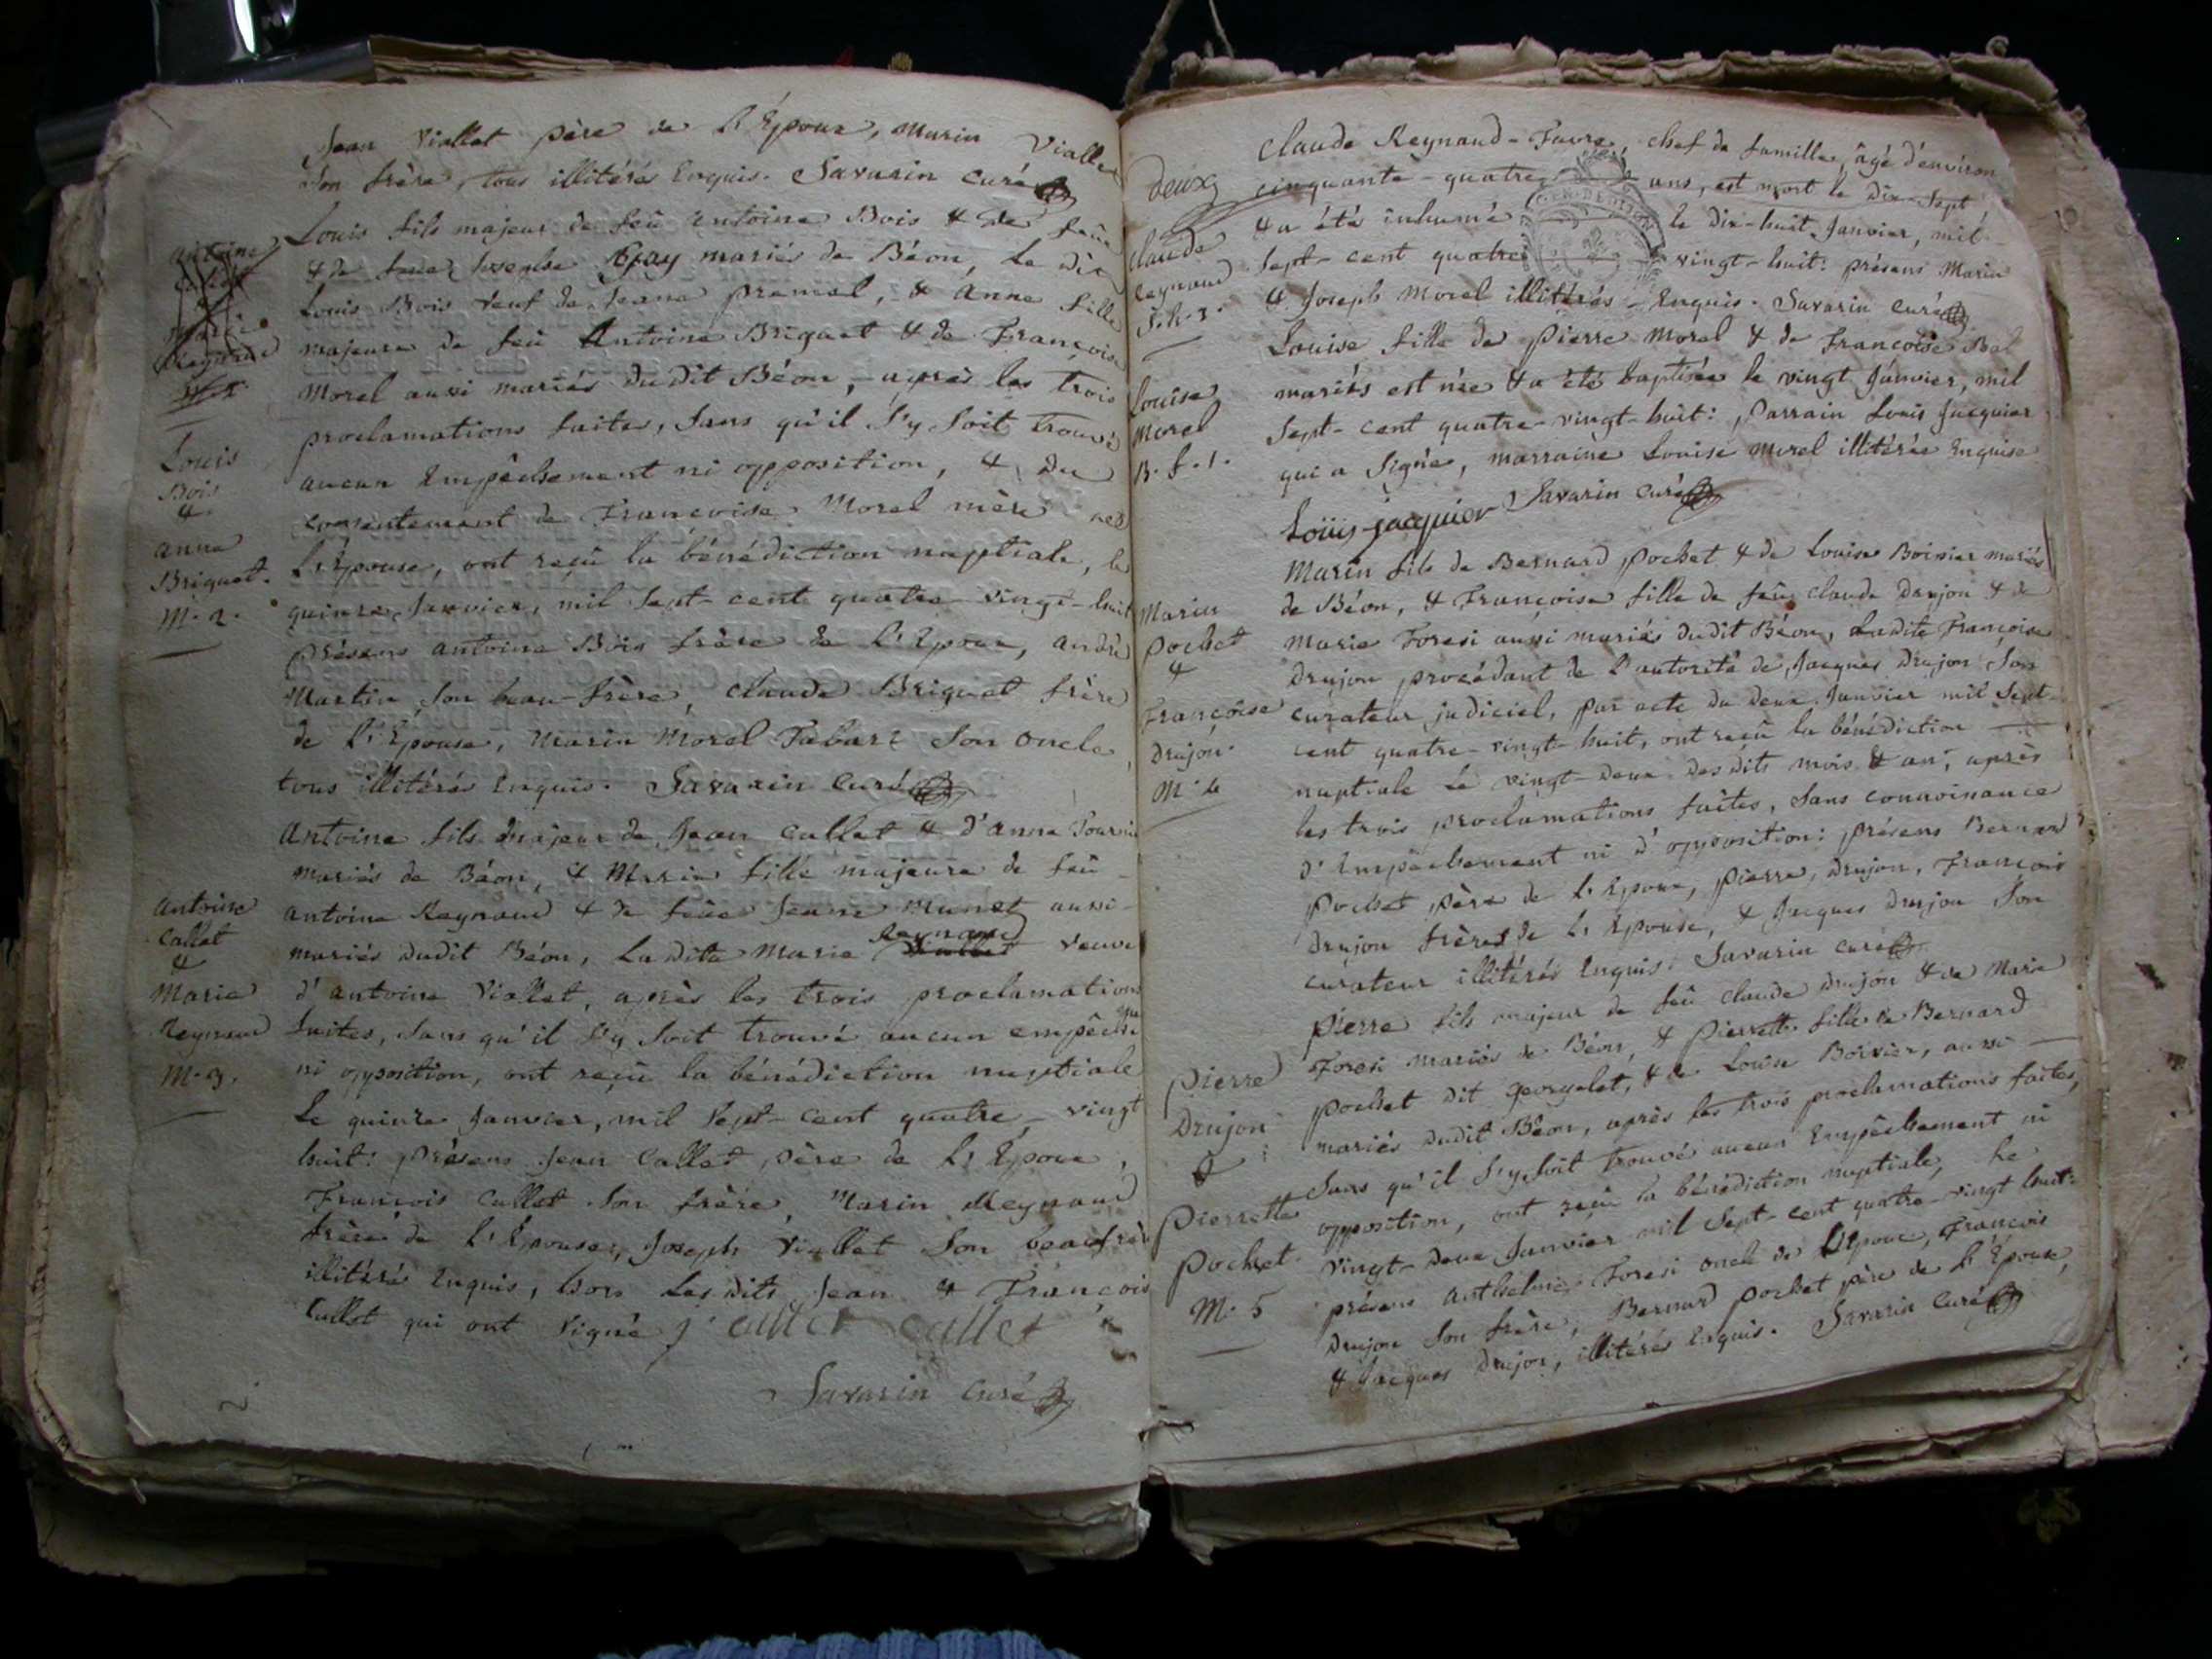 Jean Viallet père de L'Epoux, Marin Viallet
Son frère, tous illitérés Enquis. Savarin curé
Louis fils majeur de feû antoine Bois & de feüe
& de feüe mariés de Béon, Le dit
Louis Bois veuf de Jeane premel, & Anne fille
majeure de feû Antoine Briquet & de Françoise
Morel aussi mariés dudit Béon, après les trois
proclamations faites, Sans qu'il S'y Soit trouvé
aucun Empêchement ni opposition, & du
consentement de Françoise Morel mère de
L'Epouse, ont reçû la bénédiction nuptiale, le
quinze Janvier, mil Sept-cent quatre-vingt-huit
présens antoine Bois frère de L'Epoux, andré
Martin Son beau-frère, claude Briquet frère
de L'Epouse, Marin Morel Tabare Son oncle,
tous illitérés Enquis. Savarin Curé
antoine
callet
&
marie
Reynaud
Louis
Bois
&
anne
Briquet.
M. 2.
Antoine fils majeur de Jean callet & d'anne
mariés de Béon, & Marie fille majeure de feû
antoine Reynaud & de feüe Jeane Munet aussi
mariés dudit Béon, Ladite Marie Viallet Reynaud veuve
d'antoine Viallet, après les trois proclamations
faites, Sans qu'il S'y Soit trouvé aucun empêche
ni opposition, ont reçû la bénédiction nuptiale
Le quinze Janvier, mil Sept-cent quatre-vingt
huit: présens Jean Callet père de L'Epoux,
François Callet Son frère, Marin Reynaud
frère de L'Epouse, Joseph Viallet Son beaufrère
illitérés Enquis, hors Lesdits Jean & François
Callet qui ont Signé j. callet callet
Savarin Curé
antoine
callet
&
Marie
Reynaud
M. 3.
deux
claude Reynaud-Favre, chef de famille, âgé d'environ
cinquante-quatre ans, est mort le Dix-Sept
& a été inhumé le dix-huit Janvier, mil
Sept-cent quatre vingt-huit: présens Marin
& Joseph Morel illitérés Enquis. Savarin curé
claude
Reynaud
Louise fille de pierre Morel & de Françoise Bal
mariés est née & a été baptisée le vingt Janvier, mil
Sept-cent quatre-vingt-huit: parrain Louis Jacquier
qui a Signé, marraine Louise morel illitérée Enquise
Loüis jacquier Savarin curé
Louise
Morel
B. f. 1.
Marin fils de Bernard pochet & de Louise Boivier mariés
de Béon, & Françoise fille de feû claude Drujon & de
Marie Foresi aussi mariés dudit Béon, Ladite Françoise
Drujon procédant de l'autorité de Jacques Drujon Son
curateur judiciel, par acte du deux Janvier mil Sept-
cent quatre-vingt-huit, ont reçû la bénédiction
nuptiale Le vingt-deux desdits mois & an, après
les trois proclamations faites, Sans connoissance
d'Empêchement ni d'opposition: présens Bernard
pochet père de L'Epoux, pierre, Drujon, François
Drujon frères de L'Epouse, & Jacques Drujon Son
curateur illitérés Enquis. Savarin curé
Marin
pochet
&
Françoise
Drujon.
M. 4
pierre fils majeur de feû claude Drujon & de Marie
Foresi mariés de Béon, & pierrette fille de Bernard
pochet dit georgelet, & de Louise Boivier, aussi
mariés dudit Béon, après les trois proclamations faites,
Sans qu'il S'y Soit trouvé aucun Empêchement ni
opposition, ont reçû la bénédiction nuptiale, Le
vingt-deux Janvier mil Sept-cent quatre-vingt huit:
présens anthelme Foresi oncle de L'Epoux, François
Drujon Son frère, Bernard pochet père de L'Epouse,
& Jacques Drujon, illitérés Enquis. Savarin Curé
pierre
Drujon
&
pierrette
pochet.
M. 5